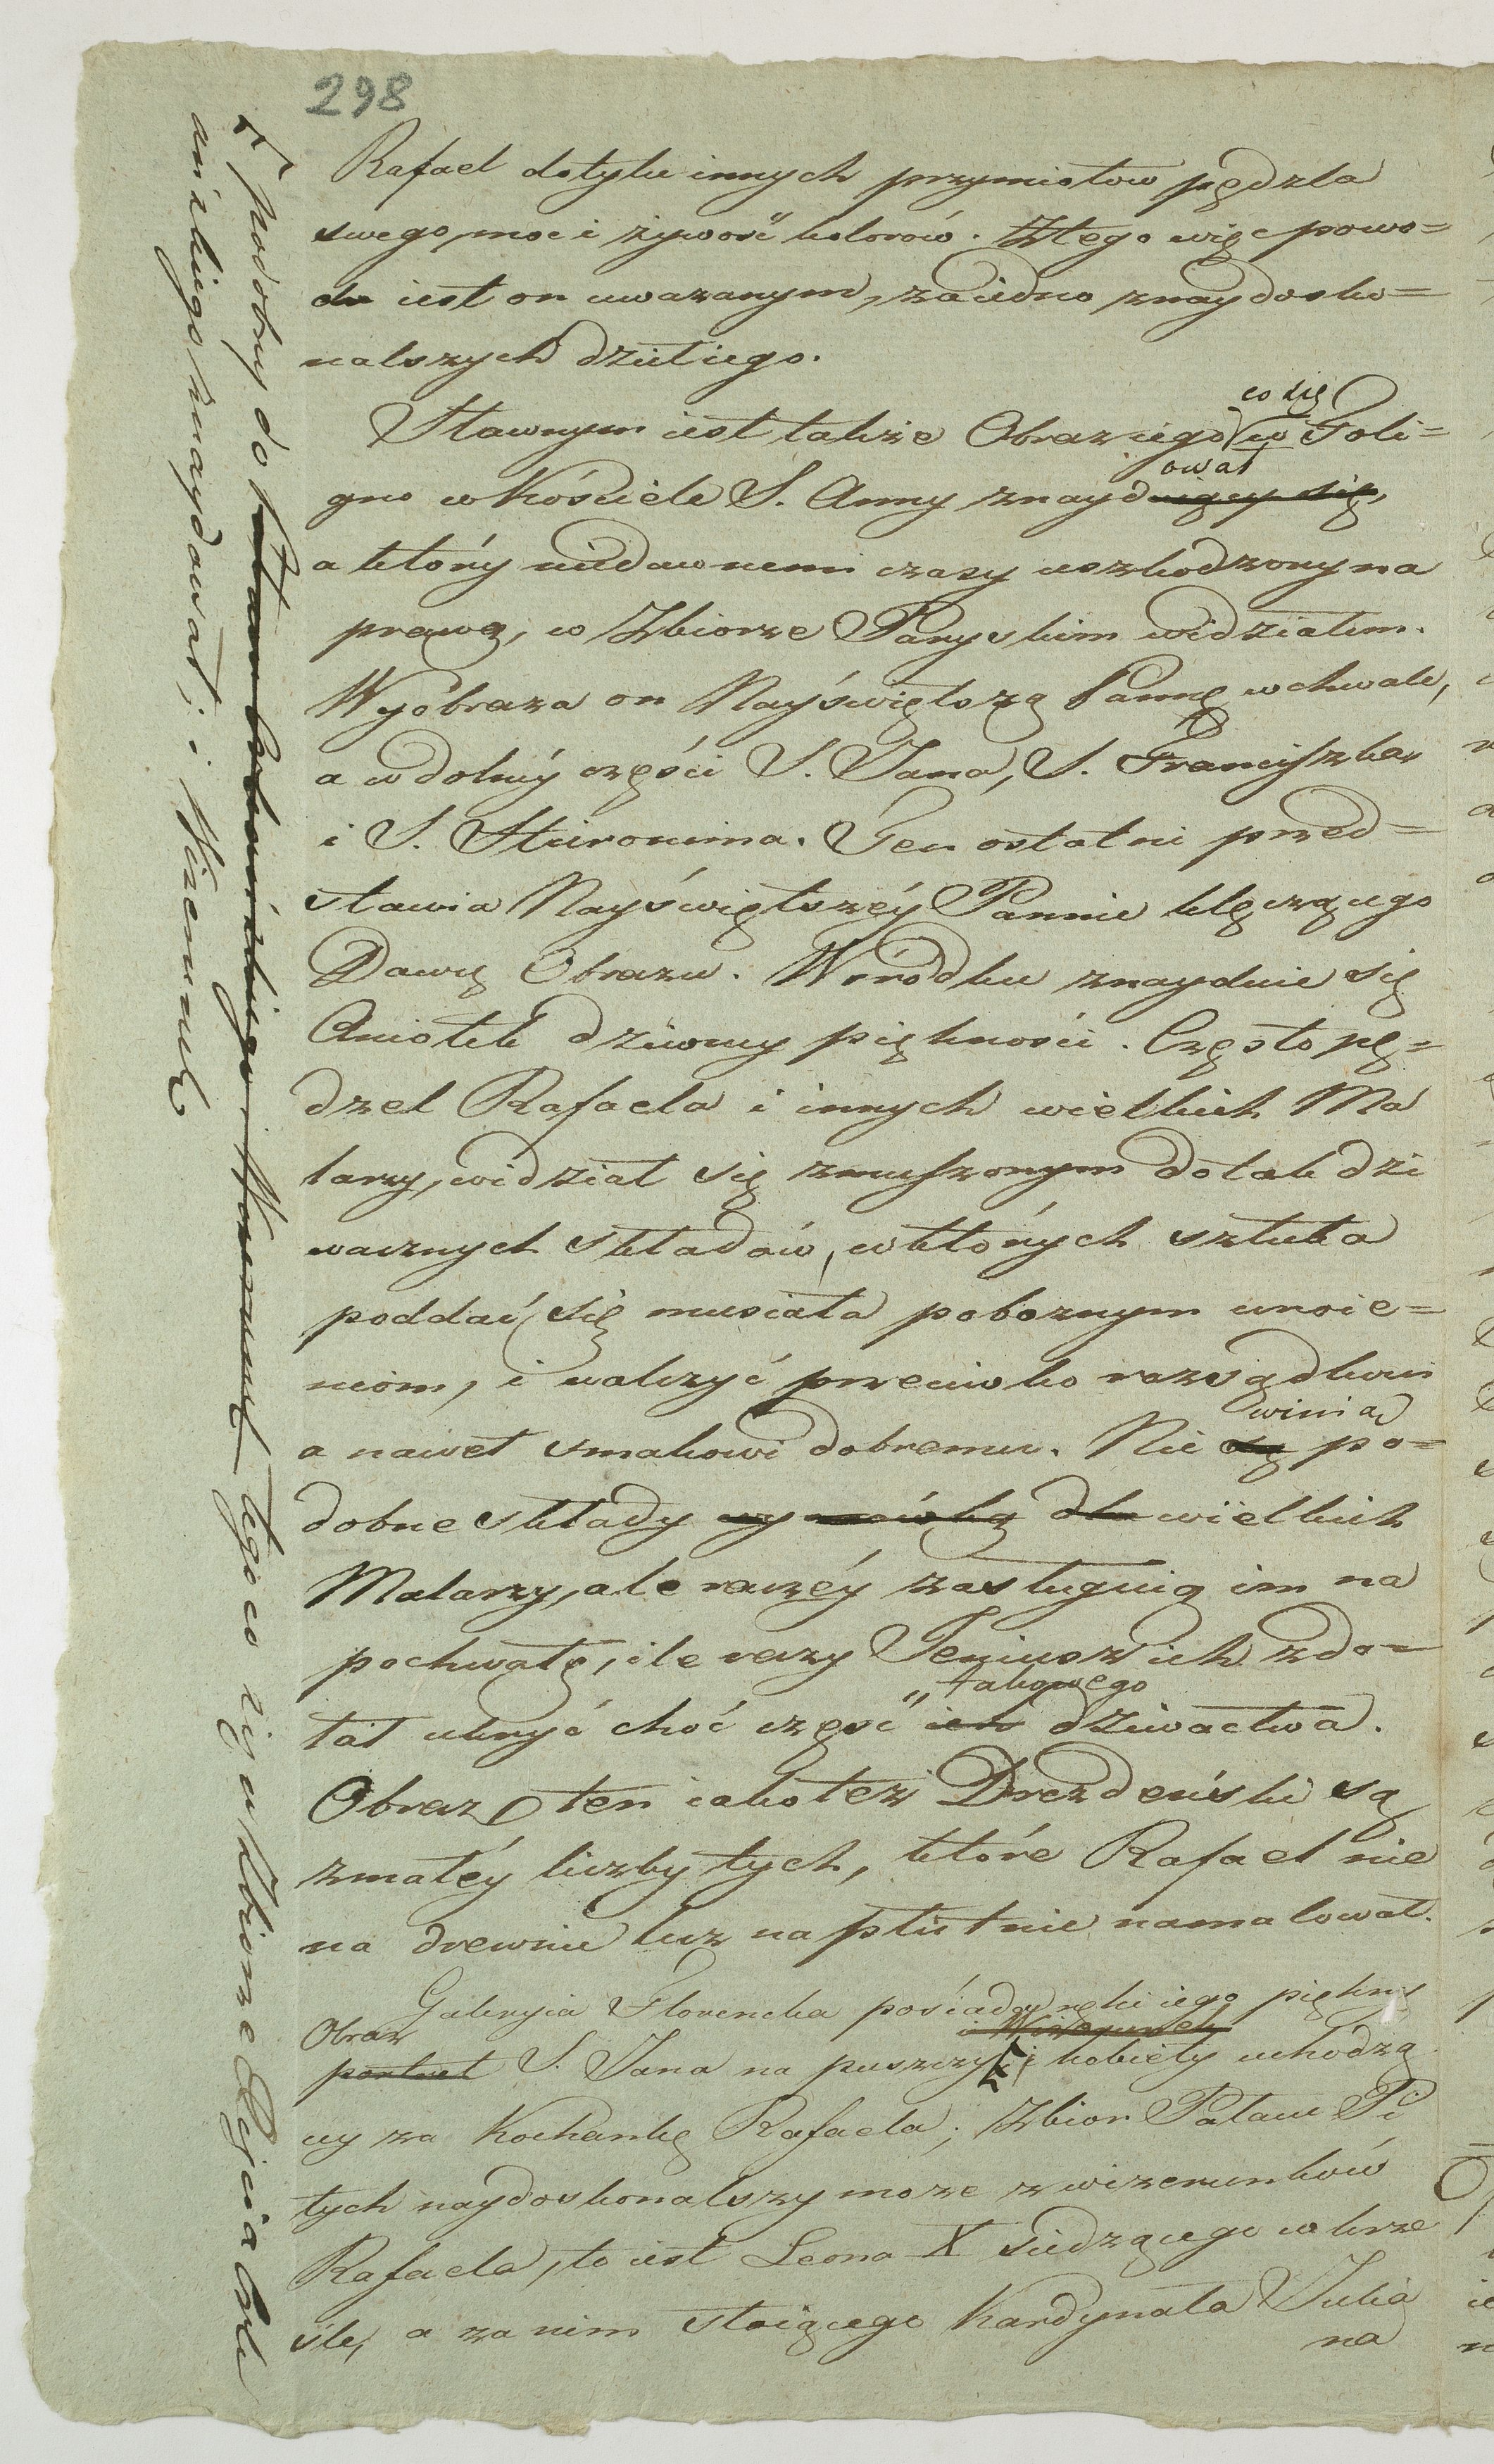 298
Rafael do tylu innych przymiotow pędzla
swego, moc i żywość kolorów. Z tego więc powo=
du iest on uważanym, za iedno z naydosko=
nalszych dzieł iego.
co się
Sławnym iest także Obraz iego w Foli=
ował
gno w Kościele S. Anny znayduiący się,
a który niedawnemi czasy uszkodzony na
prawą, w Zbiorze Paryskim widziałem.
Wyobraża on Nayświętszą Pannę w chwale,
a w dolnéy części S. Jana, S. Franciszka
i S. Hieronima. Ten ostatni przed=
stawia Nayświętszéy Pannie klęczącego
Dawcę Obrazu. W śródku znayduie się
Aniołek dziwney piękności. Często pę=
dzel Rafaela i innych wielkich Ma
larzy, widział się zmuszonym do tak dzi
wacznych składów, w których sztuka
poddać się musiała pobożnym unoie=
niom, i walczyć przeciwko rozsądkowi
winią
a nawet smakowi dobremu. Nie są po=
dobne składy wymówką dla wielkich
Malarzy, ale raczéy zasługuią im na
pochwałę, ile razy Jeniusz ich zdo=
takowego
łał ukryć choć część ich dziwactwa.
Obraz ten iako też Drezdeński są
z małéy liczby tych, które Rafael nie
na drewnie lecz na płótnie namalował.
Galeryia Florencka posiada ręki iego piękny
Obraz i Wizerunek
portret S. Jana na puszczy i kobiety uchodzą
cy za Kochankę Rafaela; Zbior Pałacu Pi
tych naydoskonalszy może z wizerunków
Rafaela, to iest Leona X siedzącego w krze
śle, a za nim stoiącego Kardynała Julia
na
podobny do tego co się w Zbiorze Xięcia Orle
ańskiego znaydował; i Wizerunek